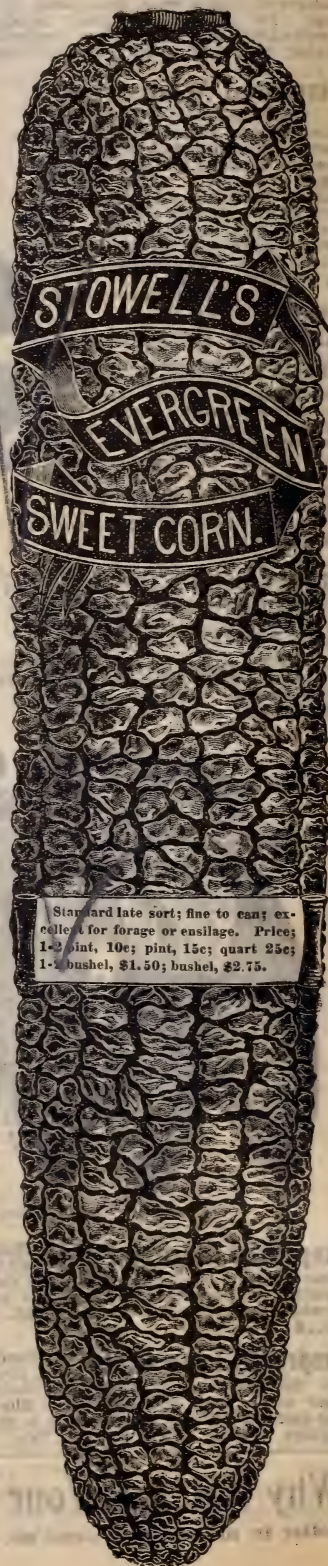 STOWELL'S
EVERGREEN
SWEET CORN.
Standard late sort; fine to can; ex-
cellent for forage or ensilage. Price;
1-2 pint, 10c; pint, 15c; quart 25c;
1-2 bushel, $1.50; bushel, $2.75.
our